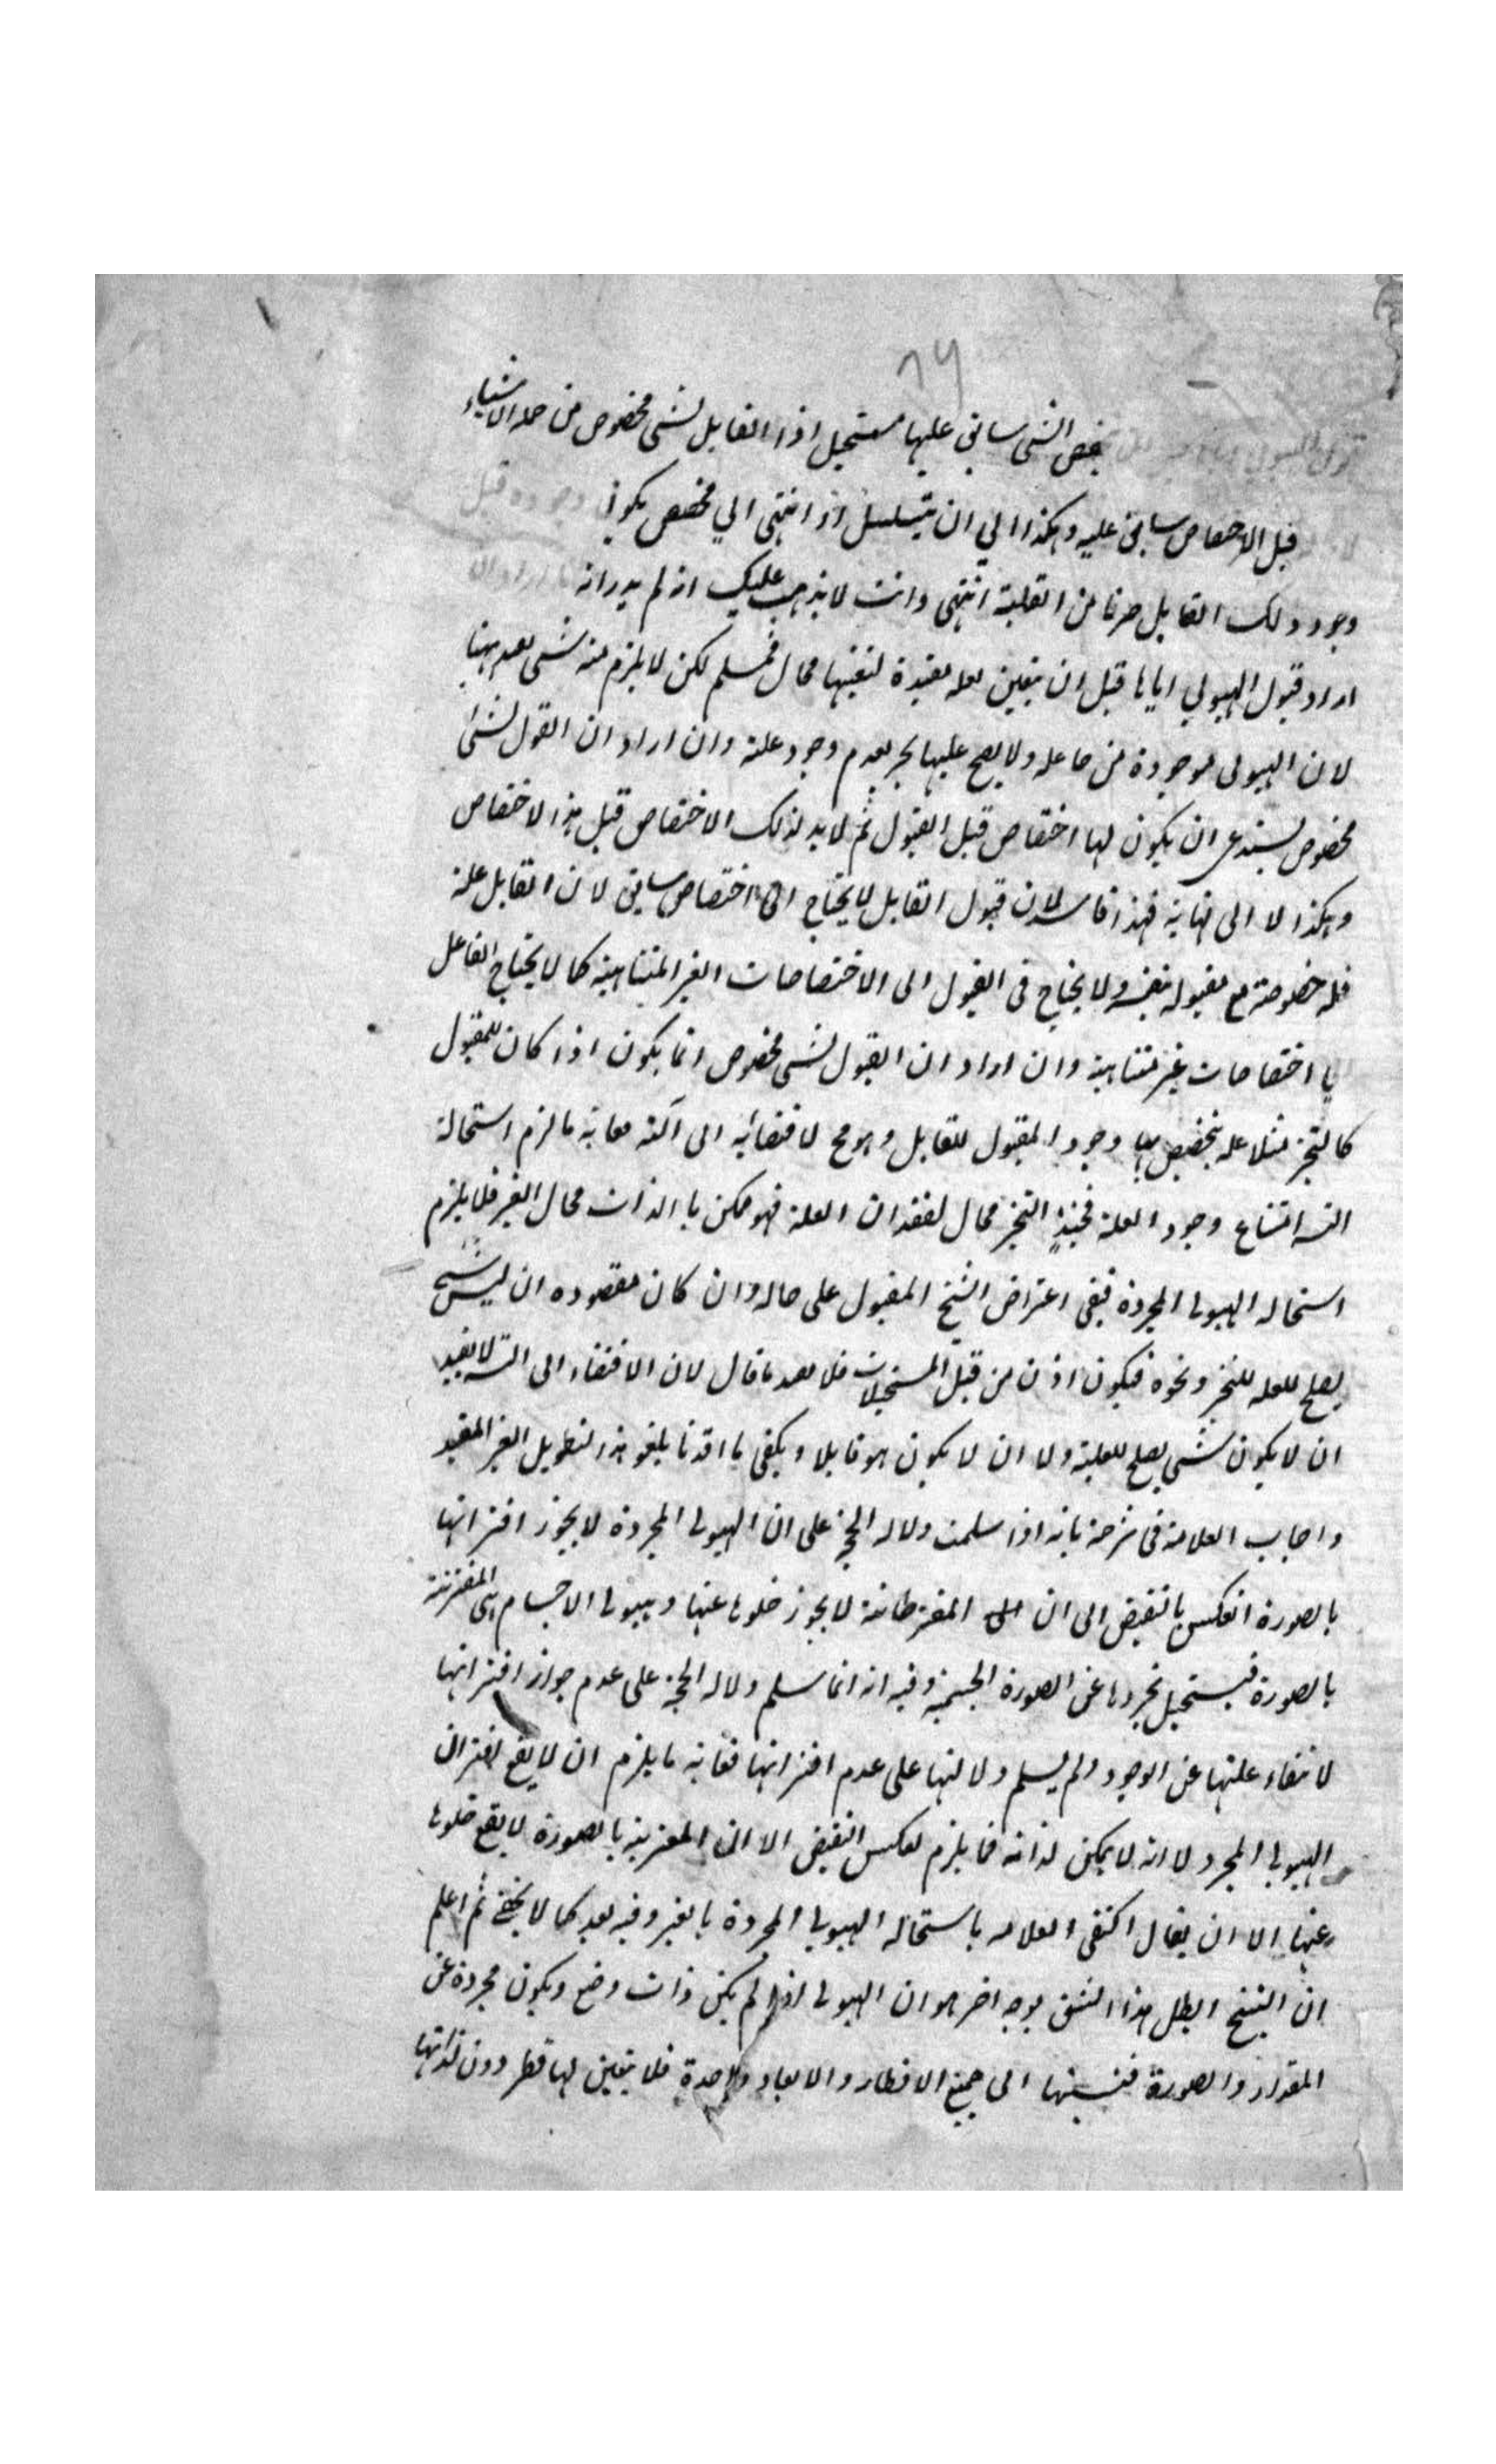 ٦٩
يخص الشى سابق عليها مستحيل اذا القابل لشى مخصوص من جملة الاشياء
قبل الاختصاص سابق عليه وهكذا الي ان يتسلسل او انتهى الي مخصص يكون وجوده قبل
وجود ذلك القابل من القلية انتهى وانت لا يذهب عليك انه لم يدر انه
اراد قبول الهيولي اياها قبل ان يتعين لعله مفيدة لتعينها محال فمسلم لكن لا يلزم منه شى بعد ههنا
لان الهيولى موجودة من ولا يصح عليها بعدم وجود علته وان اراد ان القول لشى
مخصوص يستدعى ان يكون لها اختصاص قبل القبول ثم لا بد لذلك الاختصاص قبل هذا الاختصاص
وهكذا لا الى نهاية فهذا فاسد لان قبول القابل لا يحتاج الى اختصاص سابق لان القابل علة
فله خصوصة مع مقبوله بنفسه ولا يحتاج فى القبول الى الاختصاصات الغير المتناهية كما لا يحتاج الفاعل
يا اختصاصات غير متناهية وان اراد ان القبول لشى مخصوص انما يكون اذا كان للمقبول
كالتحيز مثلا عله بتخصيص بها وجود المقبول للقابل وهو مح لافضائه الى آلته فغايته ما لزم استحالة
التسـ امتناع وجود العلة فحينئذ التحيز محال لفقدان العلة فهو ممكن باالذات محال الغير فلا يلزم
استحاله الهيولى المجردة فبقى اعتراض الشيخ المقبول على حاله وان كان مقصوده ان ليس شى
يصلح للعله للتحيز ونحوه فيكون اذن من قبل المستحيلات فلا بعد ما قال لان الافضاء الى التسـ لا يفيد
ان لا يكون شى يصلح للعلية ولا ان لا يكون هو قابلا ويكفى ما افدنا بلغو هذا التطويل الغير المفيد
واجاب العلامة فى شرحه بانه اذا سلمت دلاله الحجة على ان الهيولى المجردة لا يجوز اقترانها
بالصورة انعكس بالنقيض الى ان المقترنة لا يجوز خلوها عنها وهيولى الاجسام هى المقترنة
بالصورة فيستحيل تجردها عن الصورة الجسمية وفيه انه انما سلم دلاله الحجة على عدم جواز اقترانها
لانتفاء علتها عن الوجود ولم يسلم دلالتها على عدم اقترانها فغايته ما يلزم ان لا يقع اقتران
الهيولى المجرد لا انه لا يمكن لذاته فما يلزم لعكس النقيض الا ان المقترنة بالصورة لا يقع خلوها
عنها الا ان يقال اكتفى العلامه باستحاله الهيولى المجردة بالغير وفيه بعد كما لا يخفى ثم اعلم
ان الشيخ ابطل هذا الشق بوجه اخر هو ان الهيولى اذا لم يكن ذات وضع ويكون مجردة عن
المقدار والصورة فنسبتها الى جميع الاقطار والابعاد واحدة فلا يتعين لها قطر دون